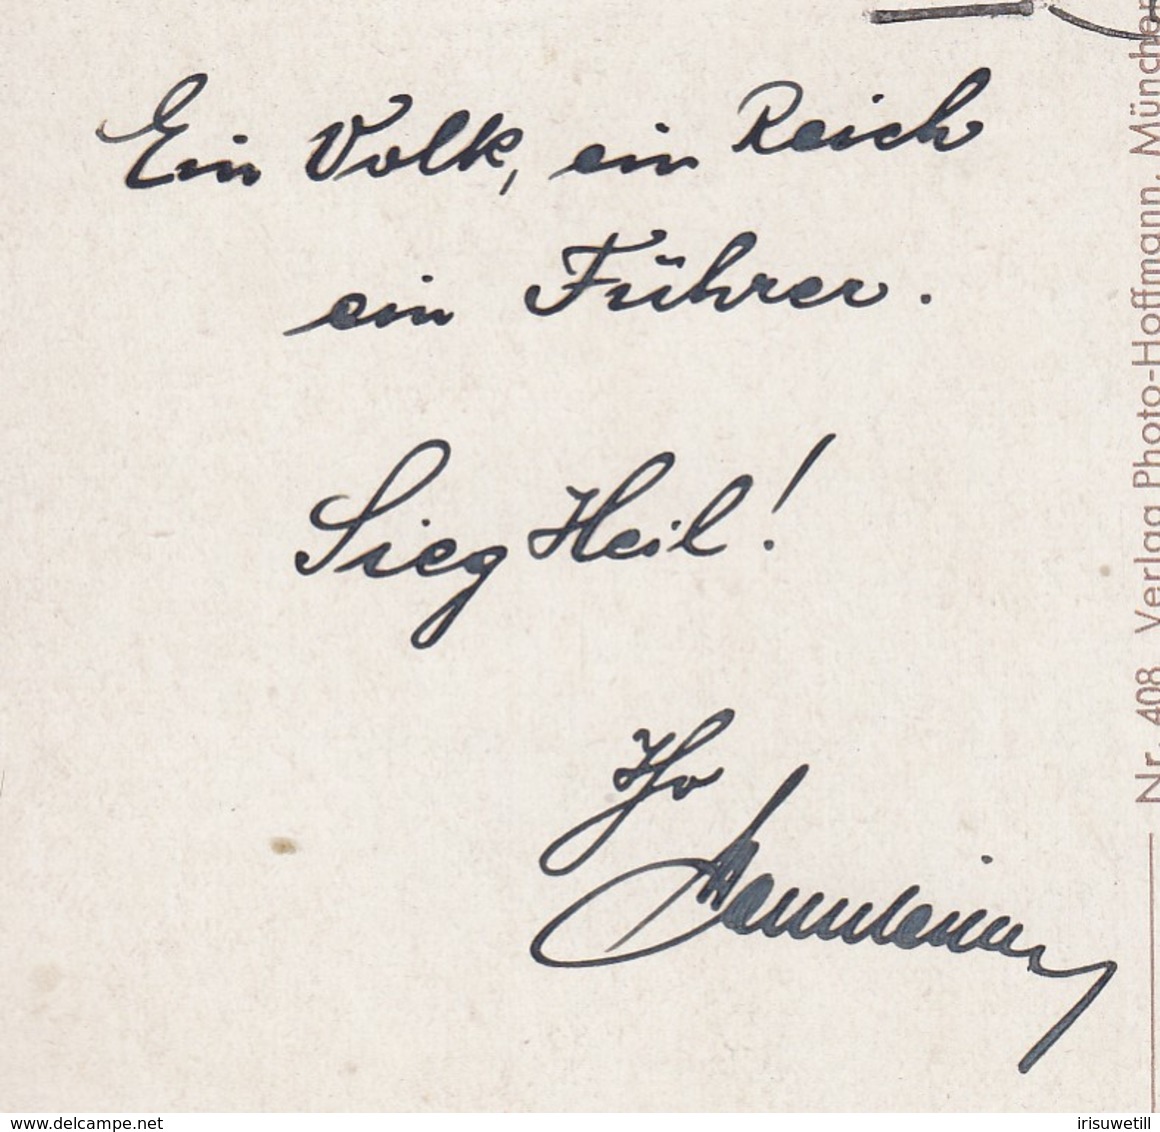 Ein Volk, ein Reich
ein Führer.
Sieg Heil!
Ihr
Nr. 408 Verlag Photo-Hoffmann, München
www.delcampe.net
irisuwetill